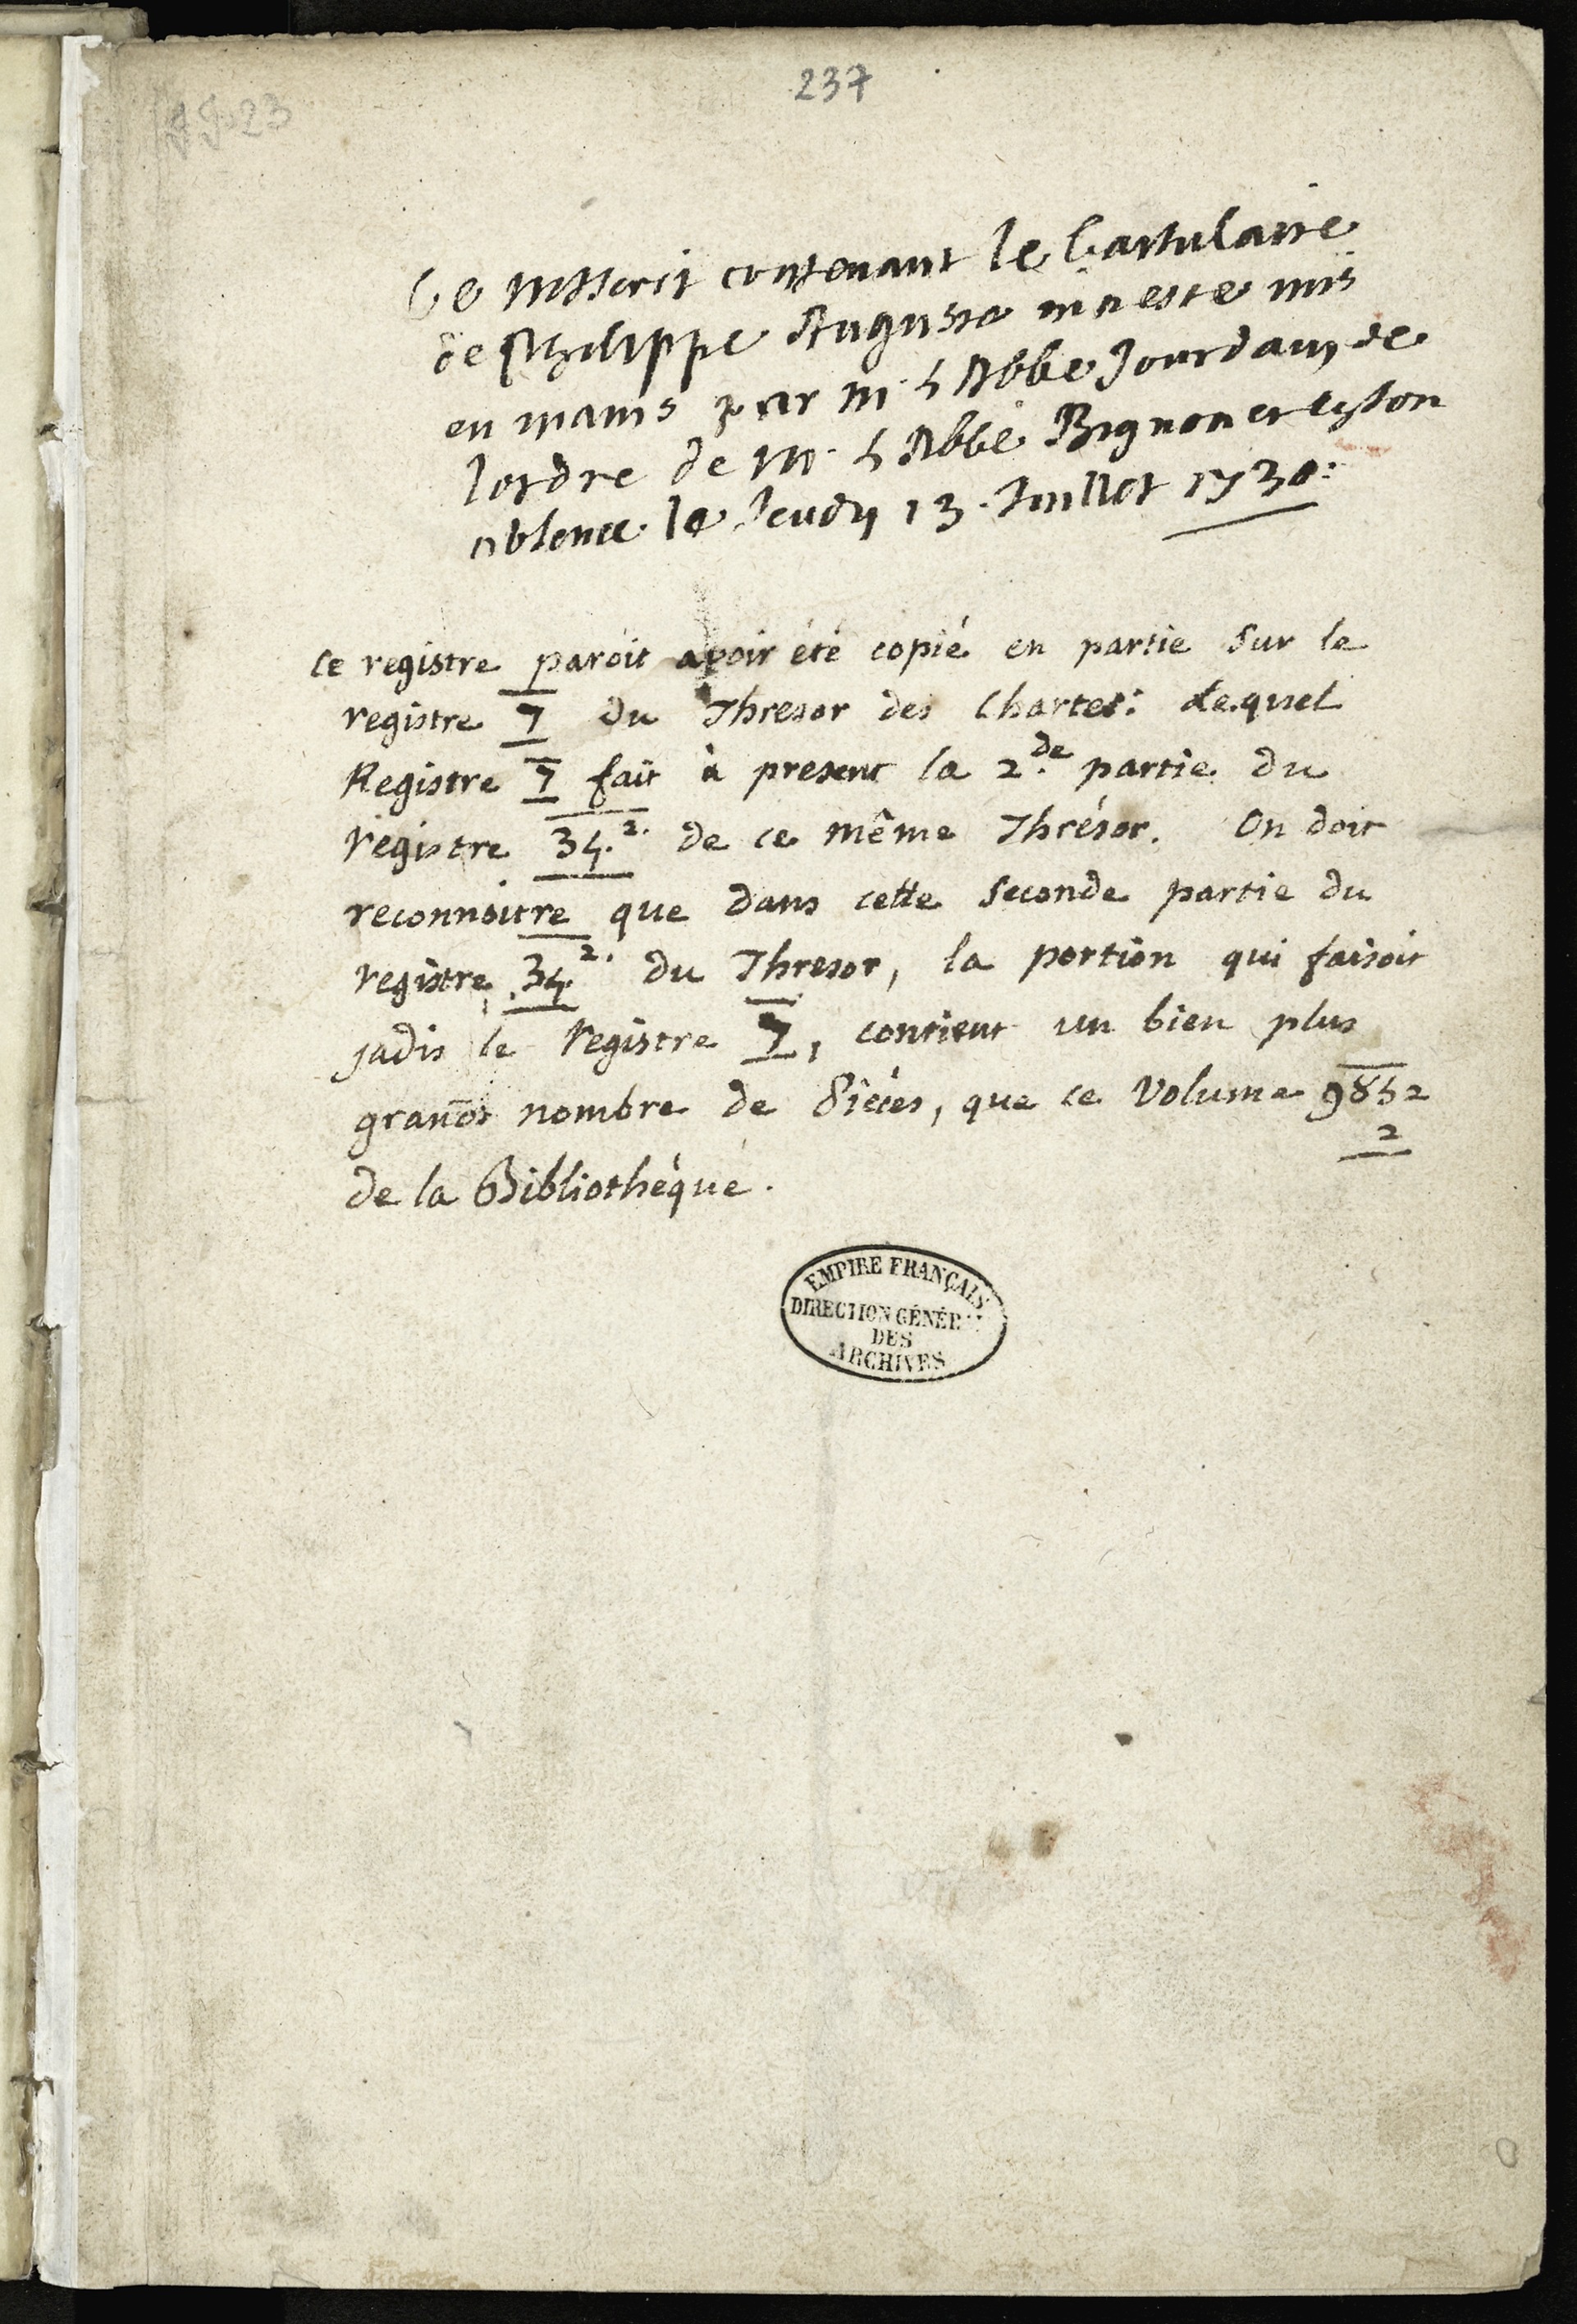 237
JJ 23
Ce msscrit contenant le Cartulaire
de Philippe Auguste m'a esté mis
en mains par Mr L'Abbé Jourdain de
lordre de Mr L'Abbé Bignon et en son
absence le Jeudy 13. Juillet 1730:
ce registre paroit avoir été copié en partie sur le
registre 7 du Thresor des Chartes: lequel
Registre 7 fait à present la 2de. partie du
registre 34.2. de ce même Thrésor. On doit
reconnoitre que dans cette seconde partie du
registre 34.2. du Thresor, la portion qui faisoit
jadis le registre 7, contient un bien plus
grand nombre de Piéces, que ce Volume 9852
2
de la Bibliothéque.
EMPIRE FRANÇAIS
DIRECTION GÉNÉR
DES
ARCHIVES